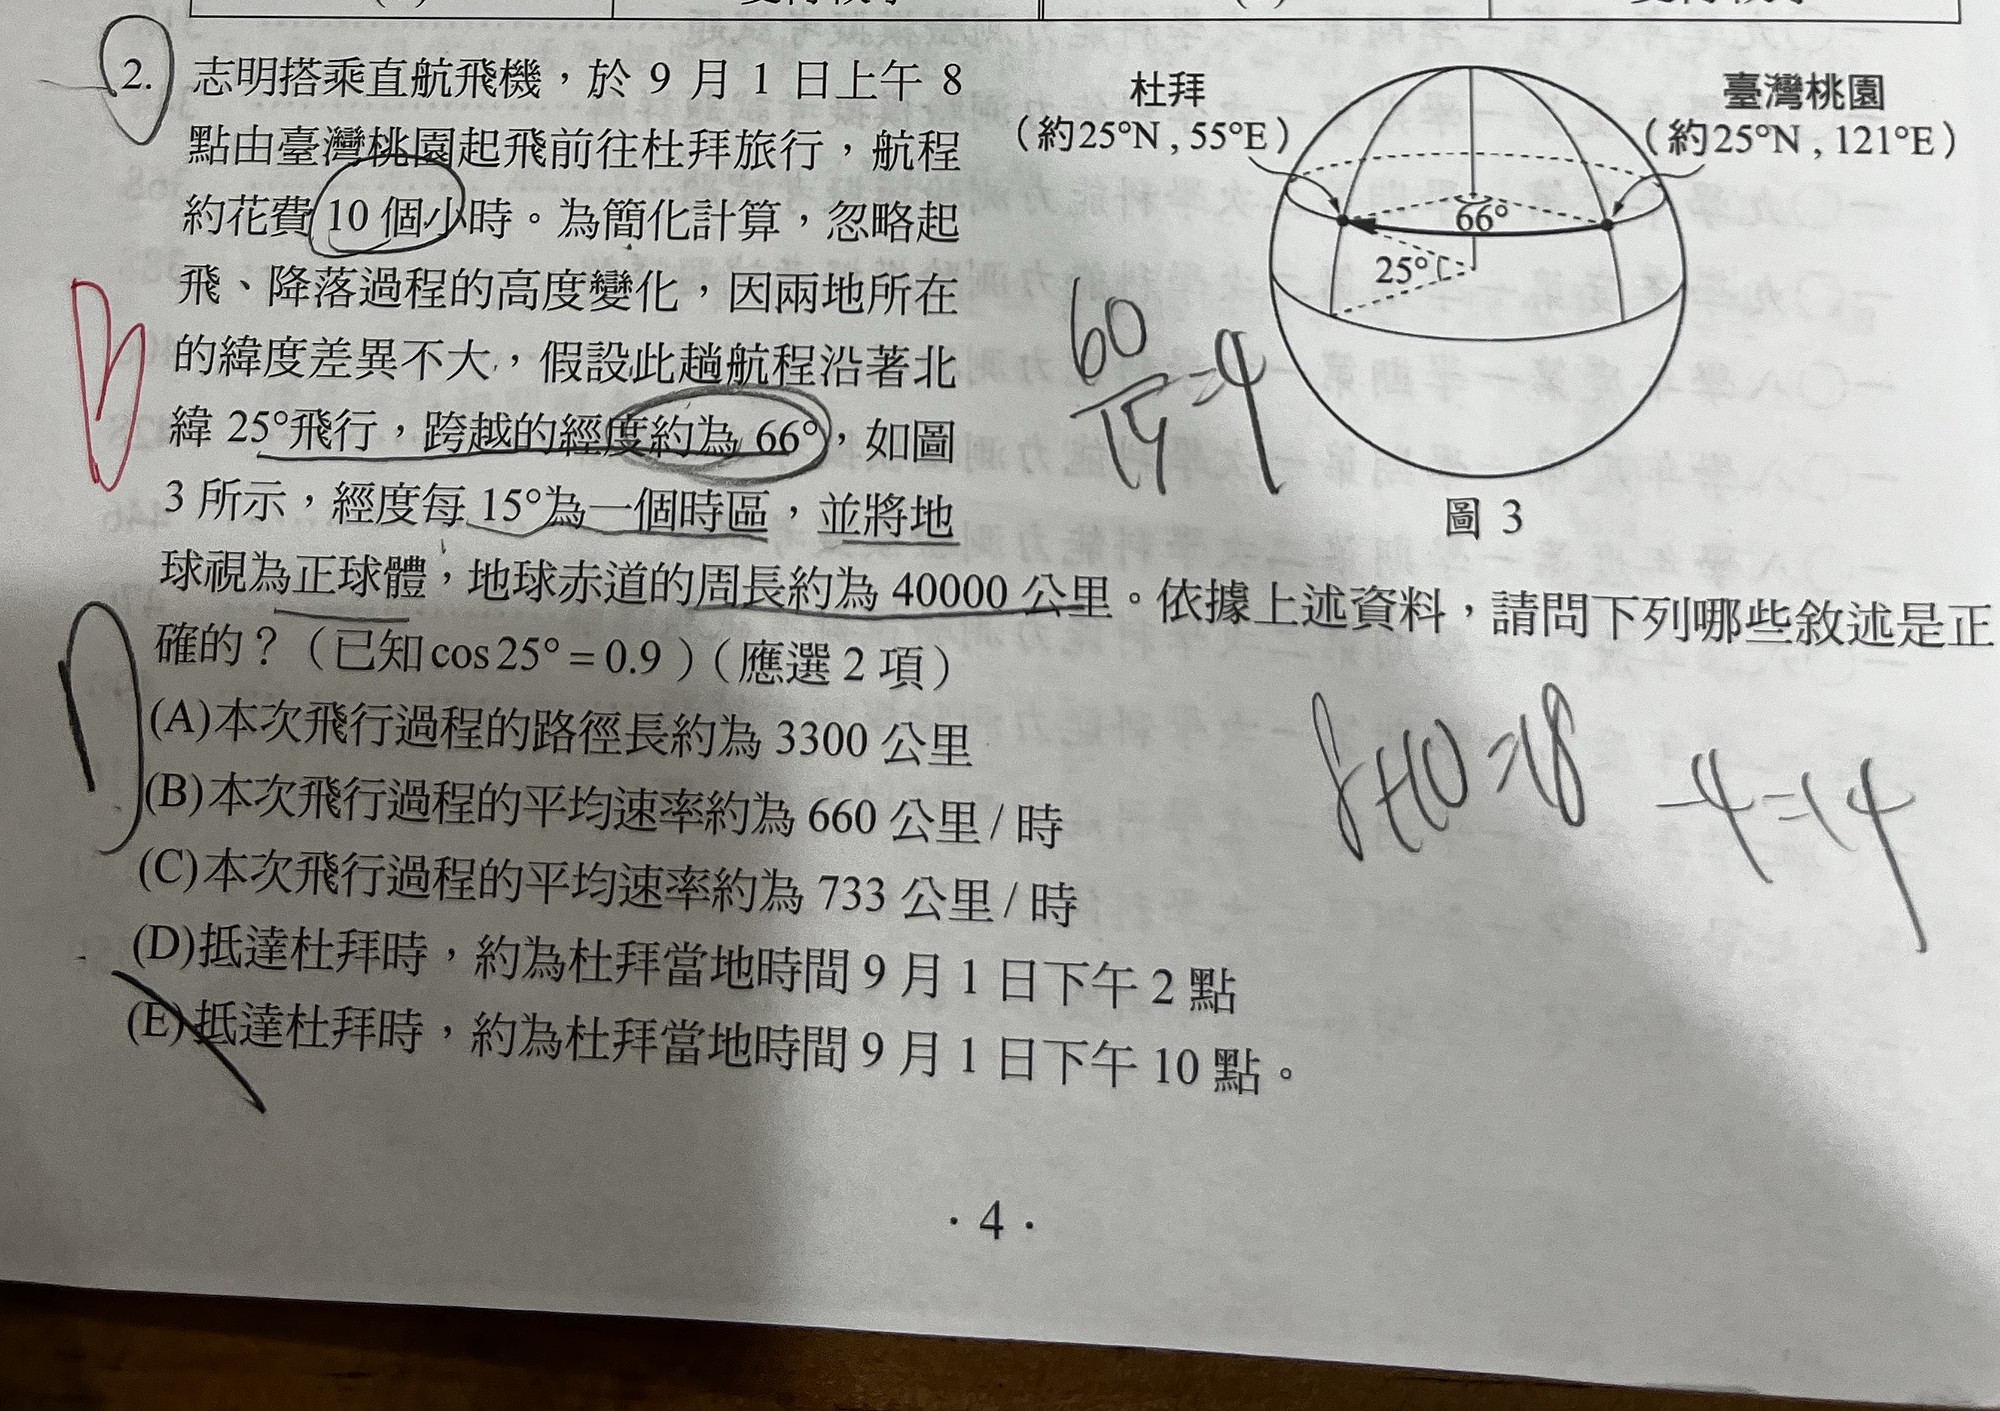 2. 志明搭乘直航飛機，於 9 月 1 日上午 8
點由臺灣桃園起飛前往杜拜旅行，航程
約花費 10 個小時。為簡化計算，忽略起
飛、降落過程的高度變化，因兩地所在
的緯度差異不大，假設此趟航程沿著北
緯 25°飛行，跨越的經度約為 66°，如圖
3 所示，經度每 15°為一個時區，並將地
球視為正球體，地球赤道的周長約為 40000 公里。依據上述資料，請問下列哪些敘述是正
確的？（已知 cos 25° = 0.9）（應選 2 項）
(A)本次飛行過程的路徑長約為 3300 公里
(B)本次飛行過程的平均速率約為 660 公里 / 時
(C)本次飛行過程的平均速率約為 733 公里 / 時
(D)抵達杜拜時，約為杜拜當地時間 9 月 1 日下午 2 點
(E)抵達杜拜時，約為杜拜當地時間 9 月 1 日下午 10 點。
杜拜
（約25°N , 55°E）
臺灣桃園
（約25°N , 121°E）
66°
25°
圖 3
60/15=4
8+10=18 -4=14
· 4 ·